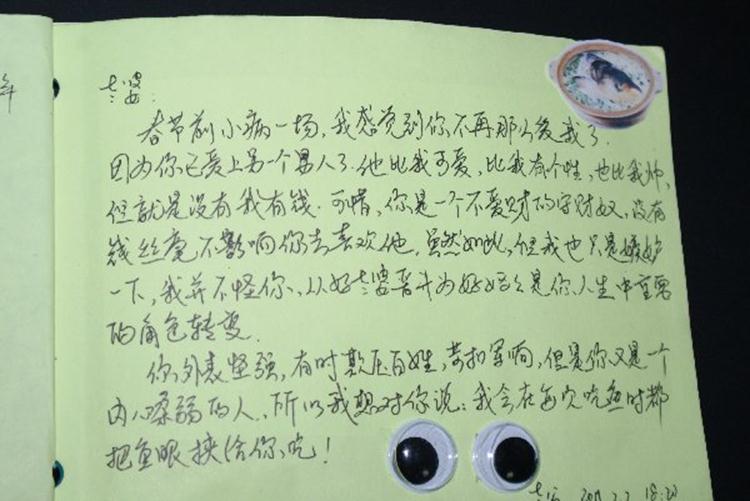 年
老婆:
春节前小病一场,我感觉到你不再那么爱我了.
因为你已爱上另一个男人了.他比我可爱,比我有个性,也比我帅,
但就是没有我有钱.可惜,你是一个不爱财的守财奴,没有
钱丝毫不影响你去喜欢他,虽然如此,但我也只是嫉妒
一下,我并不怪你,从好老婆晋升为好妈妈是你人生中重要
的角色转变.
你外表坚强,有时欺压百姓,苛扣军响,但是你又是一个
内心柔弱的人,所以我想对你说:我会在每次吃鱼时都
把鱼眼挟给你吃!